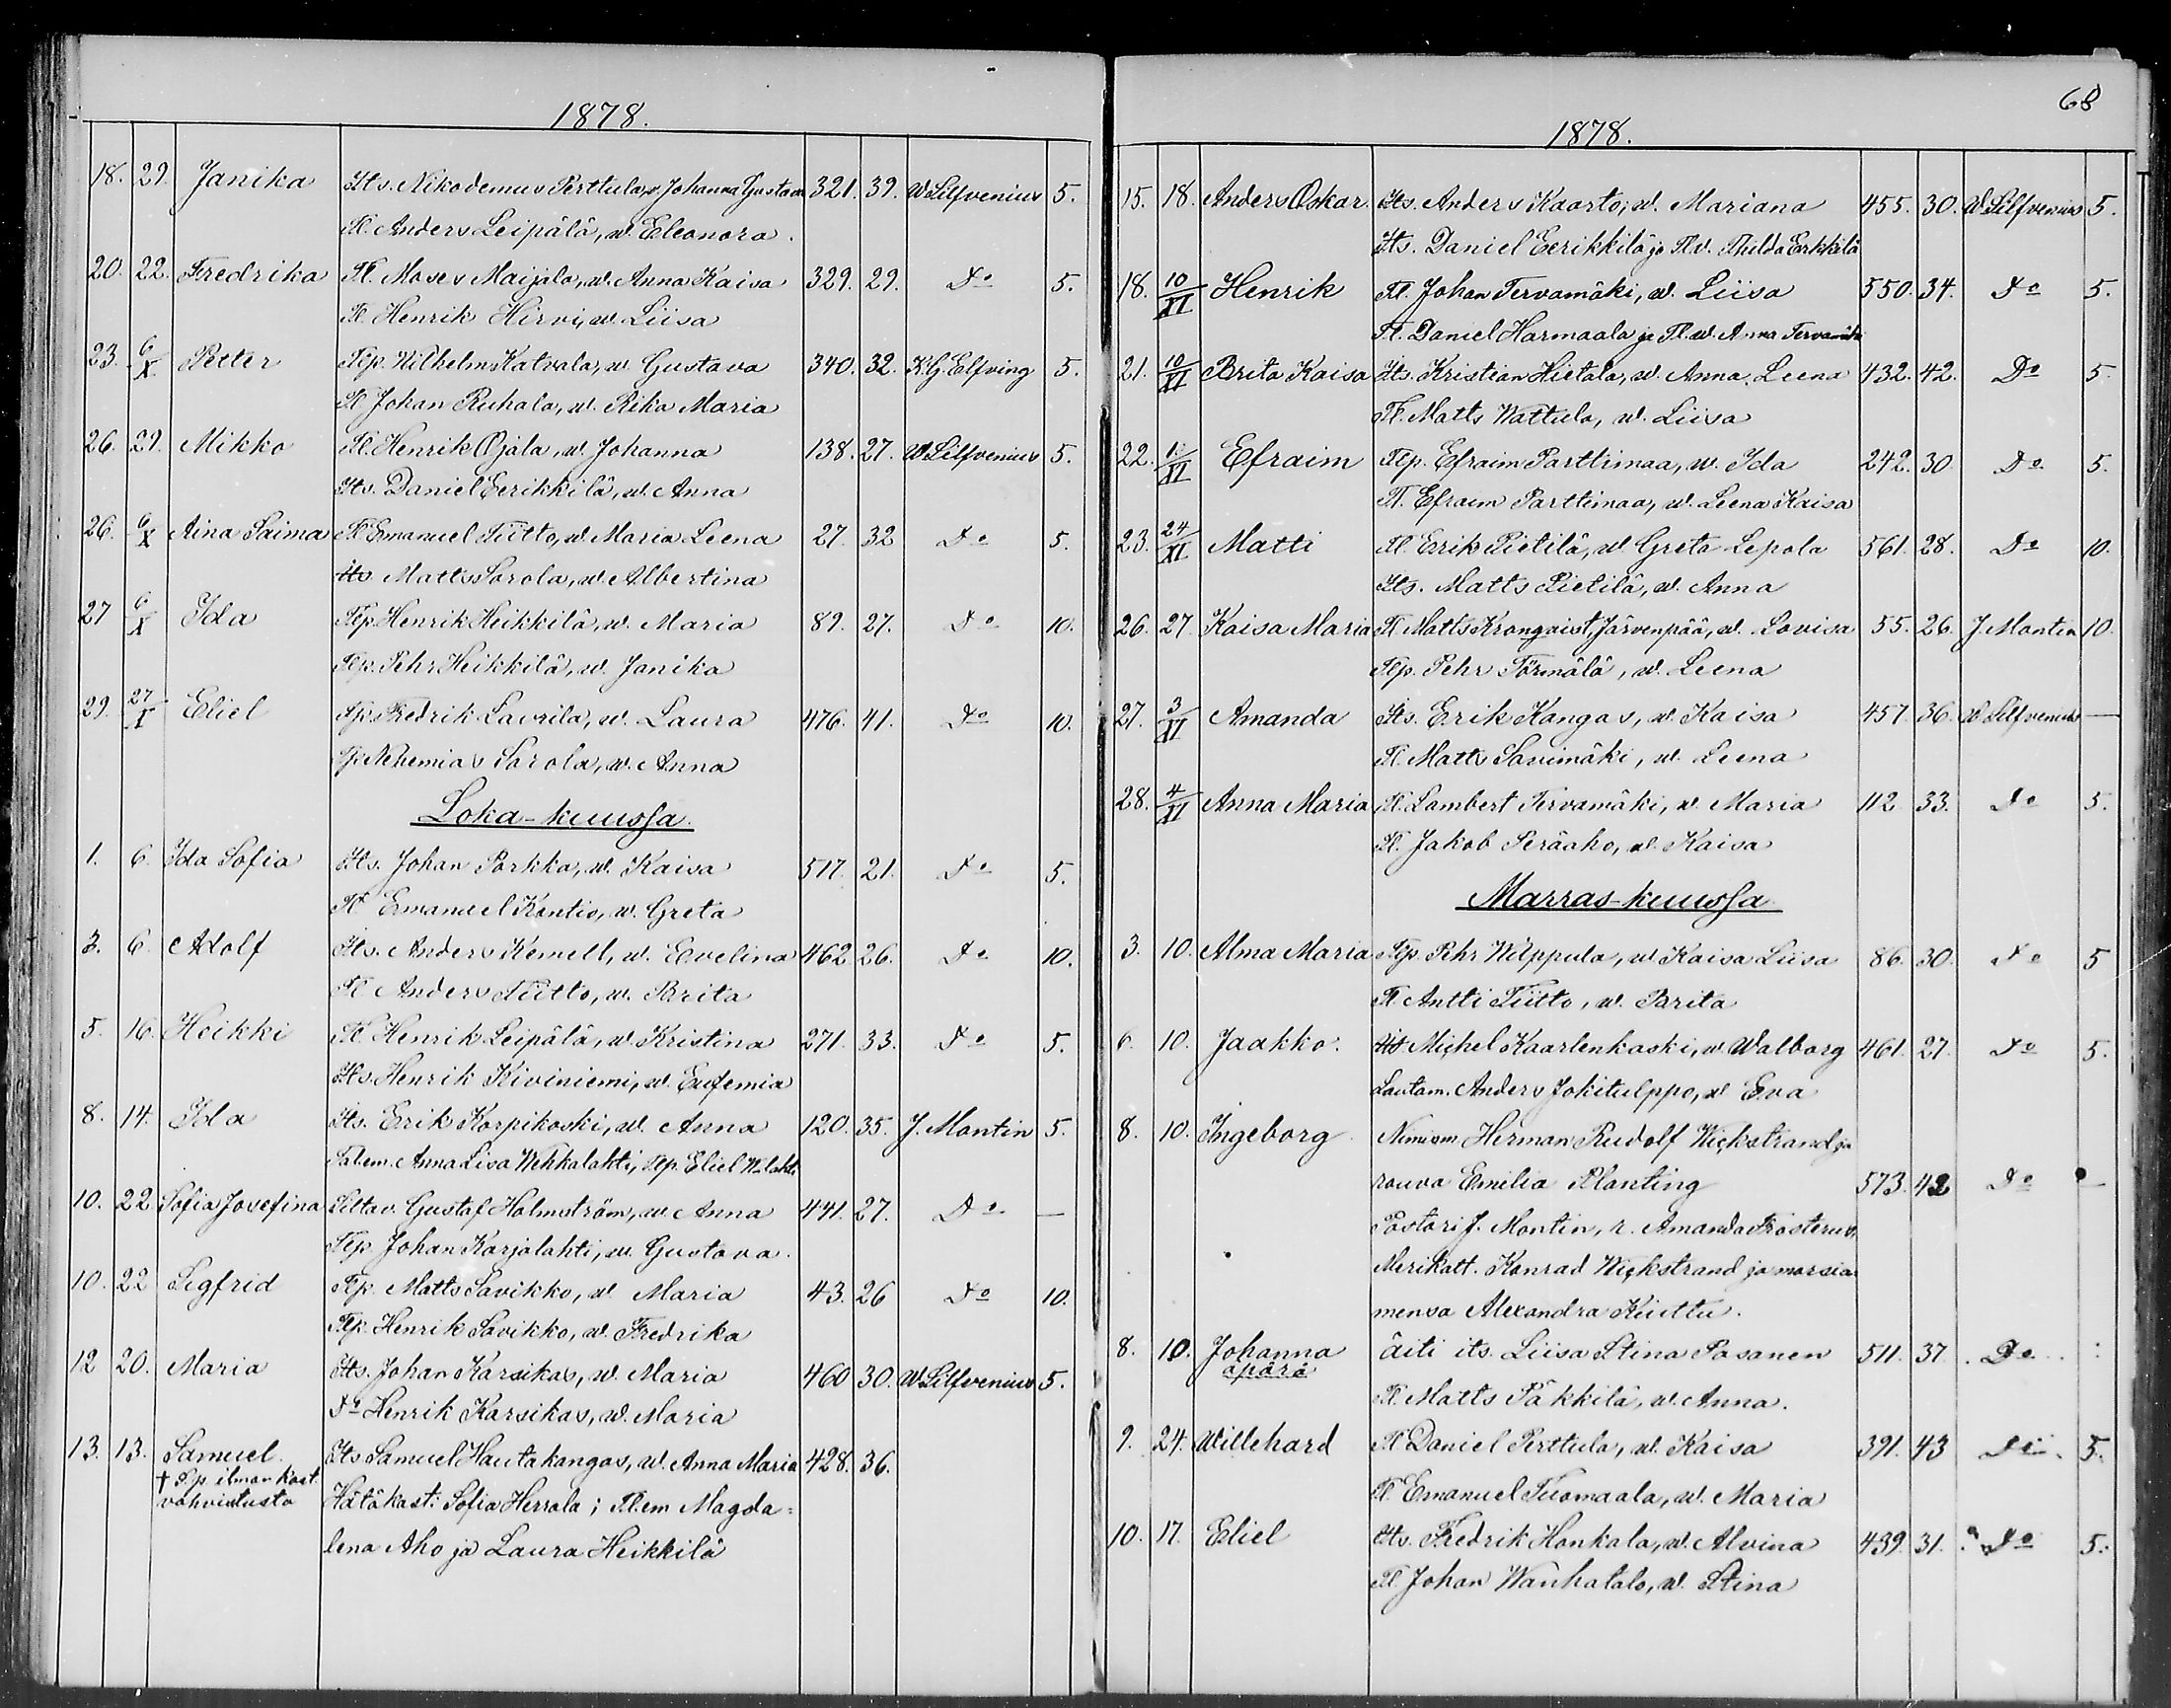 1878.
18. 29. Janika Its. Nikodemus Perttula, v. Johanna Gustava 321. 39. W Silfvenius 5.
Tl. Anders Leipälä, w. Eleonora.
20. 22. Fredrika Tl. Moses Maijala, w. Anna Kaisa 329. 29. Do 5.
Tl Henrik Hirvi, w. Liisa
23. 6/X Petter Tlp. Wilhelm Katvala, w. Gustava 340. 32. K.G. Elfving 5.
Tl Johan Ruhala, w. Rika Maria
26. 29. Mikko Tl. Henrik Ojala, w. Johanna 138. 27. W Silfvenius 5.
Its. Daniel Eerikkilä, w. Anna
26. 6/X Aina Saima Tl Emanuel Tiitto, w. Maria Leena 27. 32 Do 5.
Its Matts Sorola, w. Albertina
27 6/X Ida Tlp. Henrik Heikkilä, w. Maria 89. 27. Do 10.
Tlp. Pehr Heikkilä, w. Janika
29. 27/X Eliel Tlp. Fredrik Laurila, w. Laura 476. 41. Do 10.
Tlp Nehemias Sorola, w. Anna
Loka-kuussa.
1. 6. Ida Sofia Its. Johan Porkka, w. Kaisa 517. 21. Do 5.
Tl Emanuel Kontio, w. Greta
3. 6. Adolf Its. Anders Kemell, w. Evelina 462. 26. Do 10.
Tl Anders Tiitto, w. Brita
5. 16. Heikki Tl. Henrik Leipälä, w. Kristina 271. 33. Do 5.
Its Henrik Kiviniemi, w. Eufemia
8. 14. Ida Its. Erik Korpikoski, w. Anna 120. 35. J. Montin 5.
Tal.em. Anna Lisa Wehkalahti, Tlp. Eliel W-lahti
10. 22. Sofia Josefina Siltav. Gustaf Holmström, w. Anna 441. 27. Do —
Tlp. Johan Karjalahti, w. Gustava.
10. 22 Sigfrid Tlp. Matts Savikko, w. Maria 43. 26 Do 10.
Tlp. Henrik Savikko, w. Fredrika
12 20. Maria Its. Johan Karsikas, w. Maria 460 30. W Silfvenius 5.
Do Henrik Karsikas, w. Maria
13. 13. Samuel Its Samuel Hautakangas, w. Anna Maria 428. 36.
† S.p. ilman kast. vahvistusta Hätäkast: Sofia Herrala; Tl.em Magda=
lena Aho ja Laura Heikkilä
68
1878.
15. 18. Anders Oskar. Its. Anders Kaarto, w. Mariana 455. 30. W Silfvenius 5.
Its. Daniel Eerikkilä ja Tl.v. Thilda Eerkkilä
18. 10/XI Henrik Tl. Johan Tervamäki, w. Liisa 550. 34. Do 5.
Tl. Daniel Harmaala ja Tl.w. Anna Tervamäki
21. 10/XI Brita Kaisa Its. Kristian Hietala, w. Anna Leena 432. 42. Do 5.
Tl. Matts Wattula, w. Liisa
22. 1/XI Efraim Tlp. Efraim Parttimaa, w. Ida 242. 30 Do 5.
Tl. Efraim Parttimaa, w. Leena Kaisa
23. 24/XI Matti Tl. Errik Pietilä, w Greta Lepola 561. 28. Do 10.
Its. Matts Pietilä, w. Anna
26. 27 Kaisa Maria Tl Matts Kronqvist, Järvenpää, w. Lovisa 55. 26. J. Montin 10.
Tlp. Pehr Törmälä, w. Leena
27. 3/XI Amanda Its. Erik Kangas, w. Kaisa 457. 36. W Silfvenius —
Tl. Matts Savimäki, w. Leena
28. 4/XI Anna Maria Tl. Lambert Tervamäki, w. Maria 112 33. Do 5.
Tl. Jakob Peräaho, w. Kaisa
Marras-kuussa
3. 10. Alma Maria Tlp. Pehr Wilppula, w. Kaisa Liisa 86. 30. Do 5
Tl Antti Tiitto, w. Brita
6. 10. Jaakko. Its Michel Kaarlenkoski, w. Walborg 461. 27. Do 5.
Lautam. Anders Jokitulppo, w Eva
8. 10. Ingeborg Nimism Herman Rudolf Wickstrand ja
rouva Emilia Planting 573. 42 Do —
Pastori J. Montin, r. Amanda Frosterus,
Merikatt. Konrad Wickstrand ja
mensa Alexandra Keckman.
8. 10. Johanna äiti its. Liisa Stina Pasanen 511. 37. Do
äpärä
Tl. Matts Päkkilä, w. Anna.
9. 24. Willehard Tl Daniel Perttula, w. Kaisa 391. 43 Do 5.
Tl. Emanuel Tuomaala, w. Maria
10. 17. Eliel Its. Fredrik Honkala, w. Alvina 439. 31. Do 5.
Tl Johan Wanhatalo, w. Stina